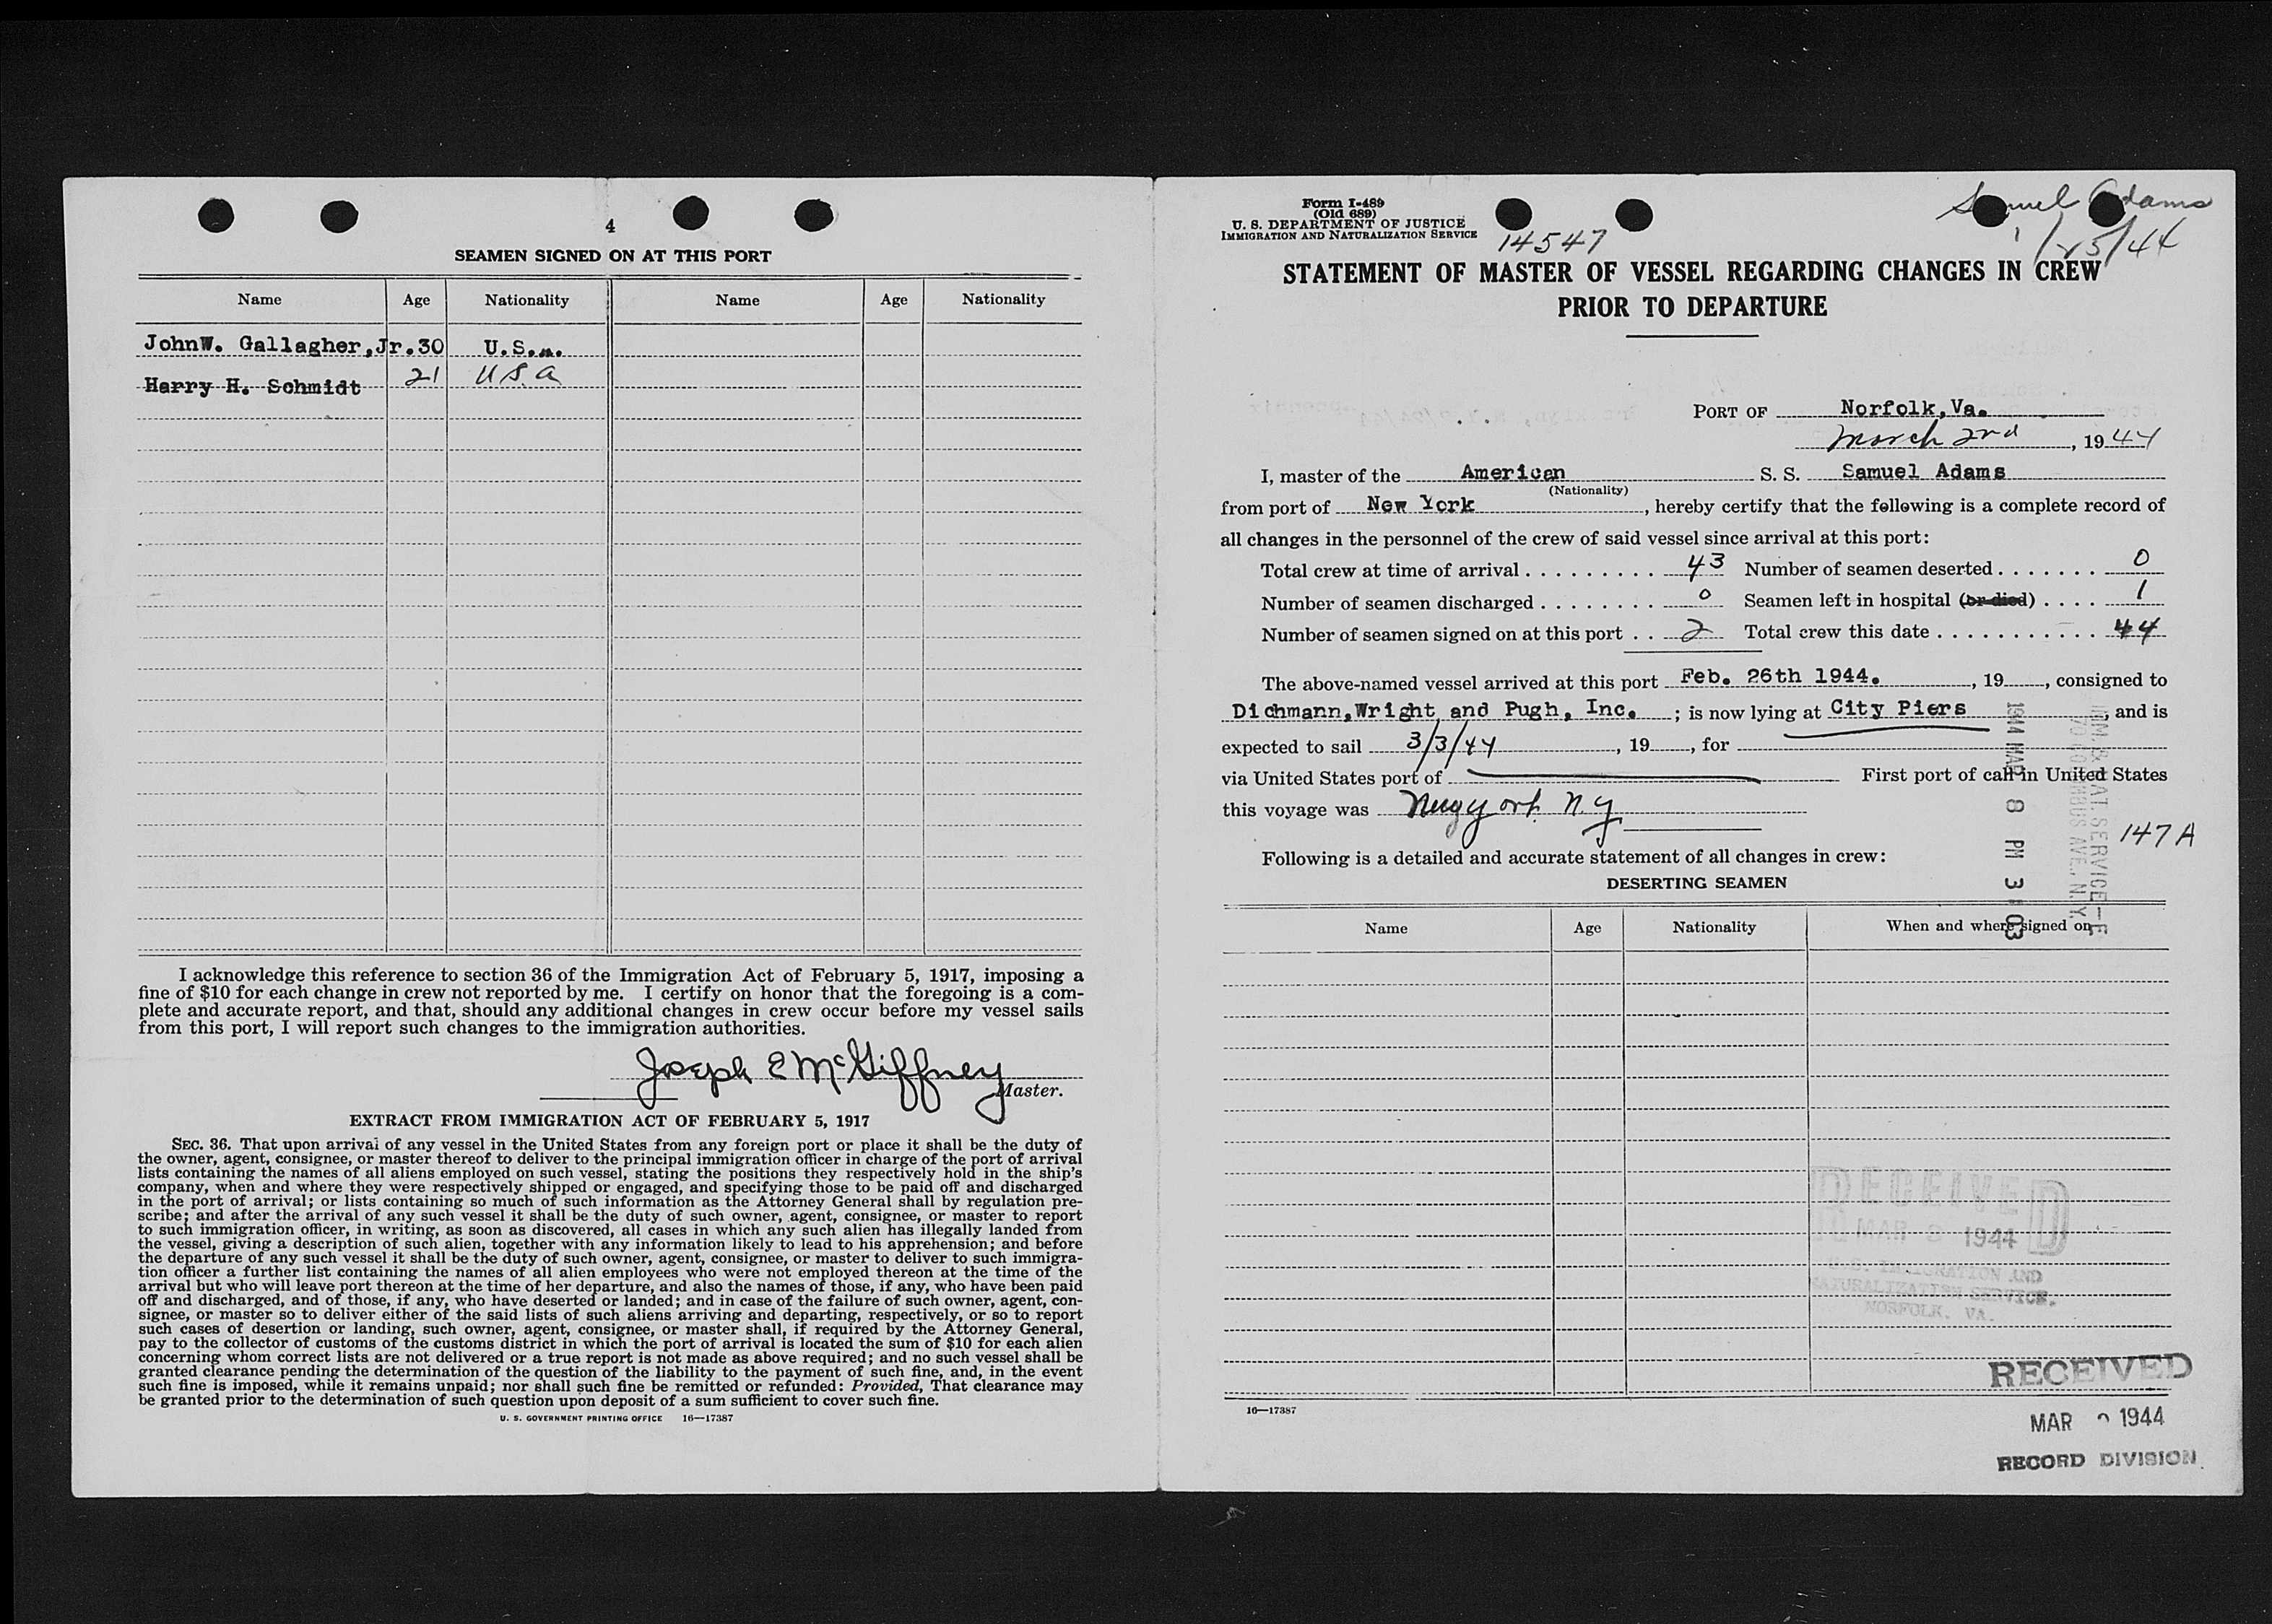 4
SEAMEN SIGNED ON AT THIS PORT
Name Age Nationality Name Age Nationality
JohnW. Gallagher,Jr. 30 U.S.A.
Harry H. Schmidt 21 U.S.A
I acknowledge this reference to section 36 of the Immigration Act of February 5, 1917, imposing a
fine of $10 for each change in crew not reported by me. I certify on honor that the foregoing is a com-
plete and accurate report, and that, should any additional changes in crew occur before my vessel sails
from this port, I will report such changes to the immigration authorities.
Joseph E McGiffney
Master.
EXTRACT FROM IMMIGRATION ACT OF FEBRUARY 5, 1917
SEC. 36. That upon arrival of any vessel in the United States from any foreign port or place it shall be the duty of
the owner, agent, consignee, or master thereof to deliver to the principal immigration officer in charge of the port of arrival
lists containing the names of all aliens employed on such vessel, stating the positions they respectively hold in the ship's
company, when and where they were respectively shipped or engaged, and specifying those to be paid off and discharged
in the port of arrival; or lists containing so much of such information as the Attorney General shall by regulation pre-
scribe; and after the arrival of any such vessel it shall be the duty of such owner, agent, consignee, or master to report
to such immigration officer, in writing, as soon as discovered, all cases in which any such alien has illegally landed from
the vessel, giving a description of such alien, together with any information likely to lead to his apprehension; and before
the departure of any such vessel it shall be the duty of such owner, agent, consignee, or master to deliver to such immigra-
tion officer a further list containing the names of all alien employees who were not employed thereon at the time of the
arrival but who will leave port thereon at the time of her departure, and also the names of those, if any, who have been paid
off and discharged, and of those, if any, who have deserted or landed; and in case of the failure of such owner, agent, con-
signee, or master so to deliver either of the said lists of such aliens arriving and departing, respectively, or so to report
such cases of desertion or landing, such owner, agent, consignee, or master shall, if required by the Attorney General,
pay to the collector of customs of the customs district in which the port of arrival is located the sum of $10 for each alien
concerning whom correct lists are not delivered or a true report is not made as above required; and no such vessel shall be
granted clearance pending the determination of the question of the liability to the payment of such fine, and, in the event
such fine is imposed, while it remains unpaid; nor shall such fine be remitted or refunded: Provided, That clearance may
be granted prior to the determination of such question upon deposit of a sum sufficient to cover such fine.
U. S. GOVERNMENT PRINTING OFFICE 16—17387
Form I-489
(Old 689)
U. S. DEPARTMENT OF JUSTICE
IMMIGRATION AND NATURALIZATION SERVICE
14547
Samuel Adams
1/25/44
STATEMENT OF MASTER OF VESSEL REGARDING CHANGES IN CREW
PRIOR TO DEPARTURE
PORT OF Norfolk,Va.
March 2nd, 1944
I, master of the American S. S. Samuel Adams
(Nationality)
from port of New York, hereby certify that the following is a complete record of
all changes in the personnel of the crew of said vessel since arrival at this port:
Total crew at time of arrival . . . . . . . . . 43 Number of seamen deserted . . . . . . . 0
Number of seamen discharged . . . . . . . . 0 Seamen left in hospital (or died) . . . . 1
Number of seamen signed on at this port . . 2 Total crew this date . . . . . . . . . . . 44
The above-named vessel arrived at this port Feb. 26th 1944., 19, consigned to
Dichmann,Wright and Pugh, Inc. ; is now lying at City Piers, and is
expected to sail 3/3/44, 19, for
via United States port of First port of call in United States
this voyage was New York N.Y
IMM. & NAT. SERVICE
70 COLUMBUS AVE., N.Y.
1944 MAR 8 PM 3 03
147A
Following is a detailed and accurate statement of all changes in crew:
DESERTING SEAMEN
Name Age Nationality When and where signed on
RECEIVED
MAR 3 1944
U.S. IMMIGRATION AND
NATURALIZATION SERVICE.
NORFOLK, VA.
RECEIVED
MAR 1944
RECORD DIVISION
16—17387